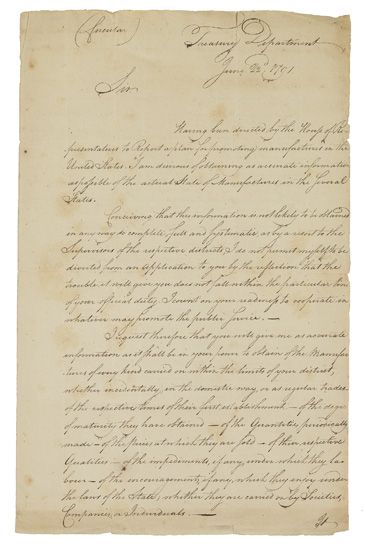 (Circular)
Treasury Department
June 22d. 1791
Sir
Having been directed by the House of Re-
presentatives to Report a plan for promoting manufactures in the
United States. I am desirous of obtaining as accurate information
as possible of the actual State of Manufactures in the several
States.
Conceiving that this information is not likely to be obtained
in any way so complete, full and systematic as by a resort to the
Supervisors of the respective districts, I do not permit myself to be
diverted from an application to you by the reflection that the
trouble it will give you does not fall within the particular line
of your official duty, I count on your readiness to cooperate in
whatever may promote the public Service. —
I request therefore that you will give me as accurate
information as it shall be in your power to obtain of the Manufac-
tures of every kind carried on within the limits of your district,
whether incidentally, in the domestic way, or as regular trades
of the respective times of their first establishment — of the degree
of maturity they have obtained — of the Quantities periodically
made — of the prices at which they are sold — of their respective
Qualities — of the impediments, if any, under which they la-
bour — of the encouragements, if any, which they enjoy under
the laws of the State, whether they are carried on by Societies,
Companies, or Individuals. —
It